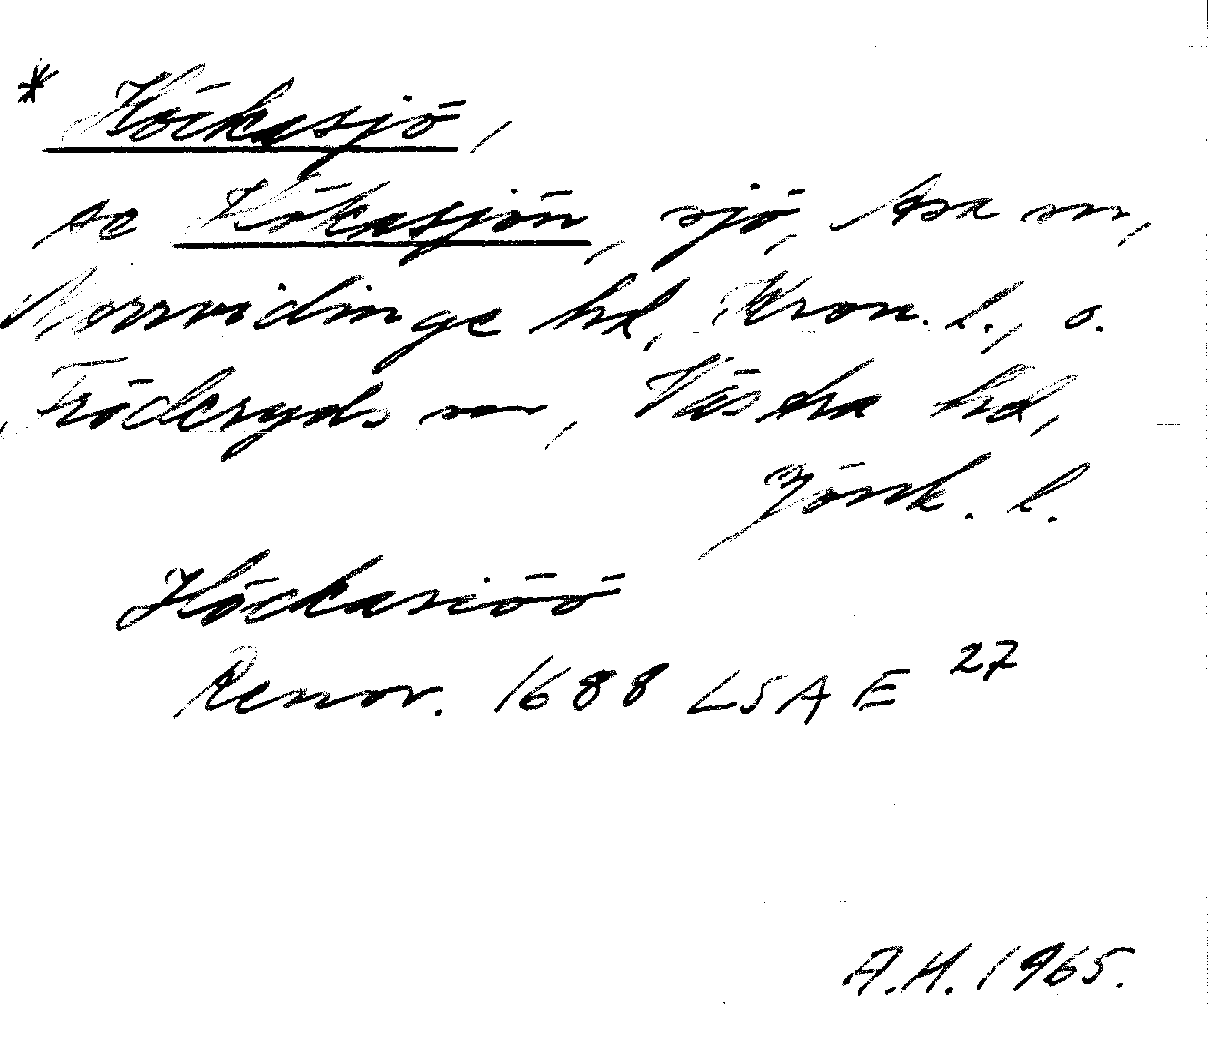 * Höckasjö,
se Hökasjön, sjö, Asa sn,
Norrvidinge hd, Kron. l., o.
Fröderyds sn, Västra hd,
Jönk. l.
Höckasiöö
Renov. 1688 LSA E 27
A.H. 1965.